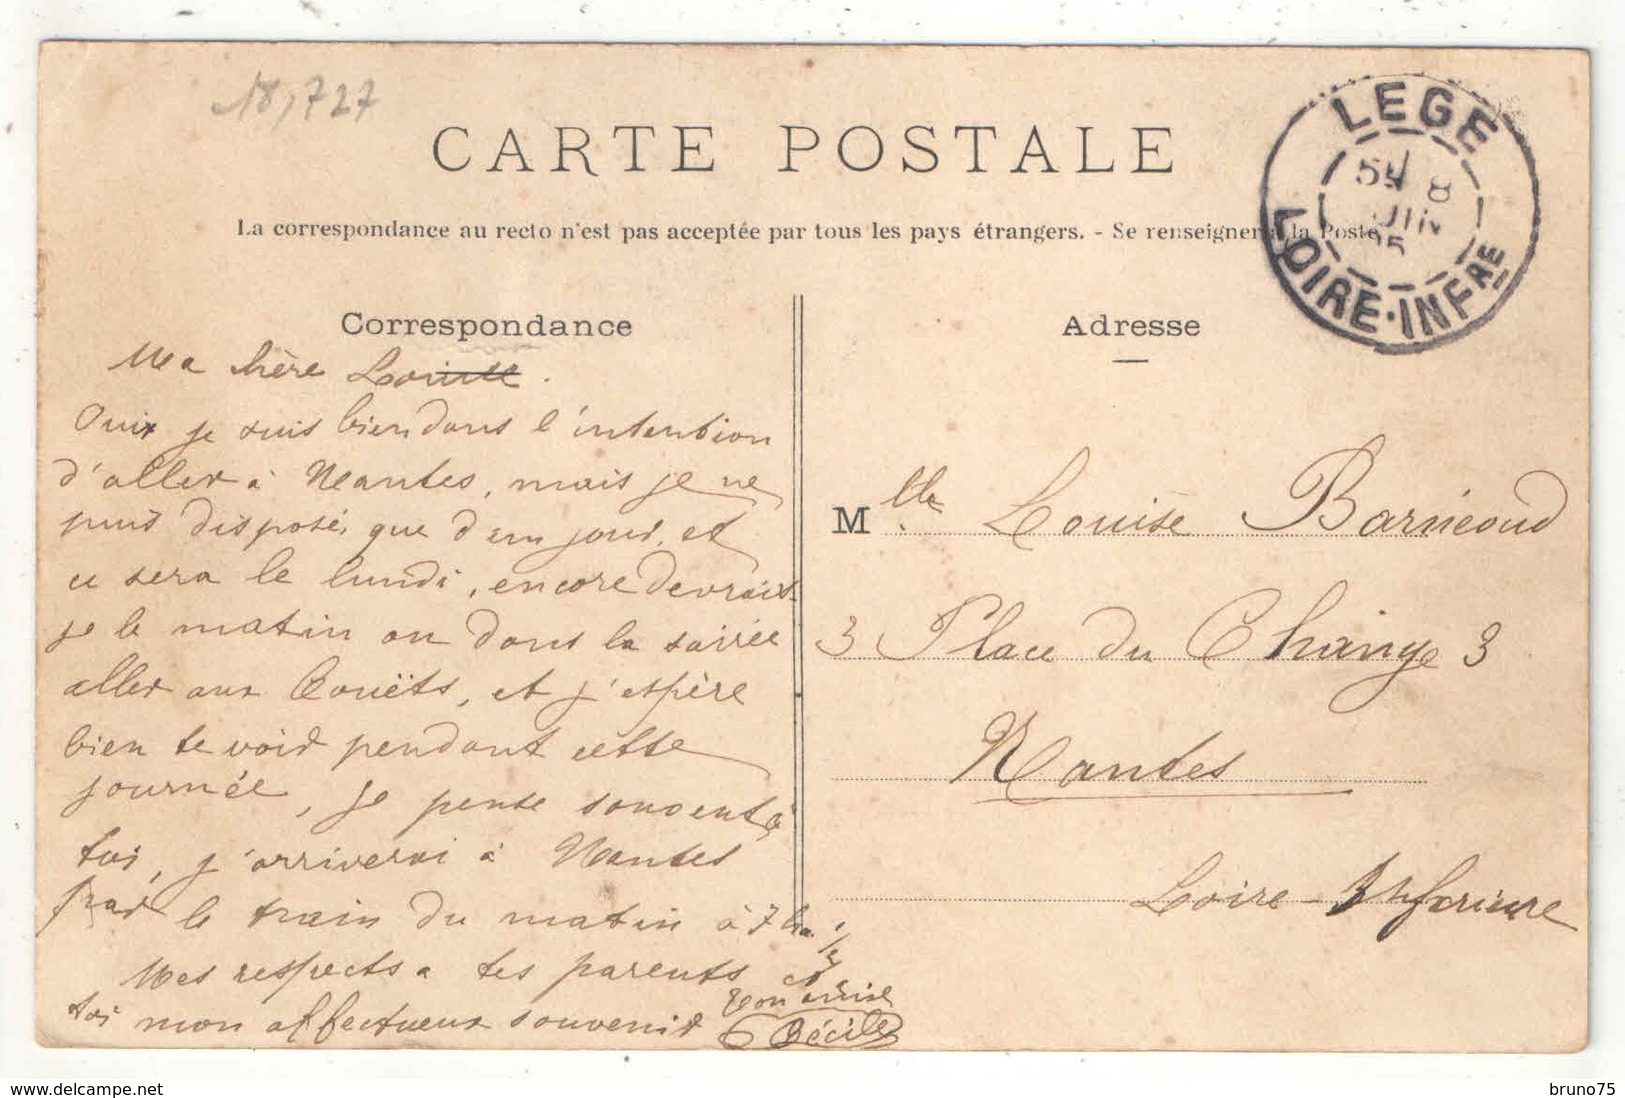 18,727
CARTE POSTALE
La correspondance au recto n'est pas acceptée par tous les pays étrangers. - Se renseigner à la Poste
LEGE
5E 8
JUIN
05
LOIRE-INFRE
Correspondance
Ma chère Louise.
Oui je suis bien dans l'intention
d'aller à Nantes, mais je ne
puis disposé, que d'un jour, et
ce sera le lundi, encore devrais-
je le matin ou dans la soirée
aller aux Couëts, et j'espère
bien te voir pendant cette
journée, je pense souvent à
toi, j'arriverai à Nantes
par le train du matin à 7 h. 1/2
Mes respects a tes parents et
toi mon affectueux souvenir
Ton amie
Cécile
Adresse
Mlle Louise Barnéoud
3 Place du Change 3
Nantes
Loire-Inférieure
delcampe.net
bruno75